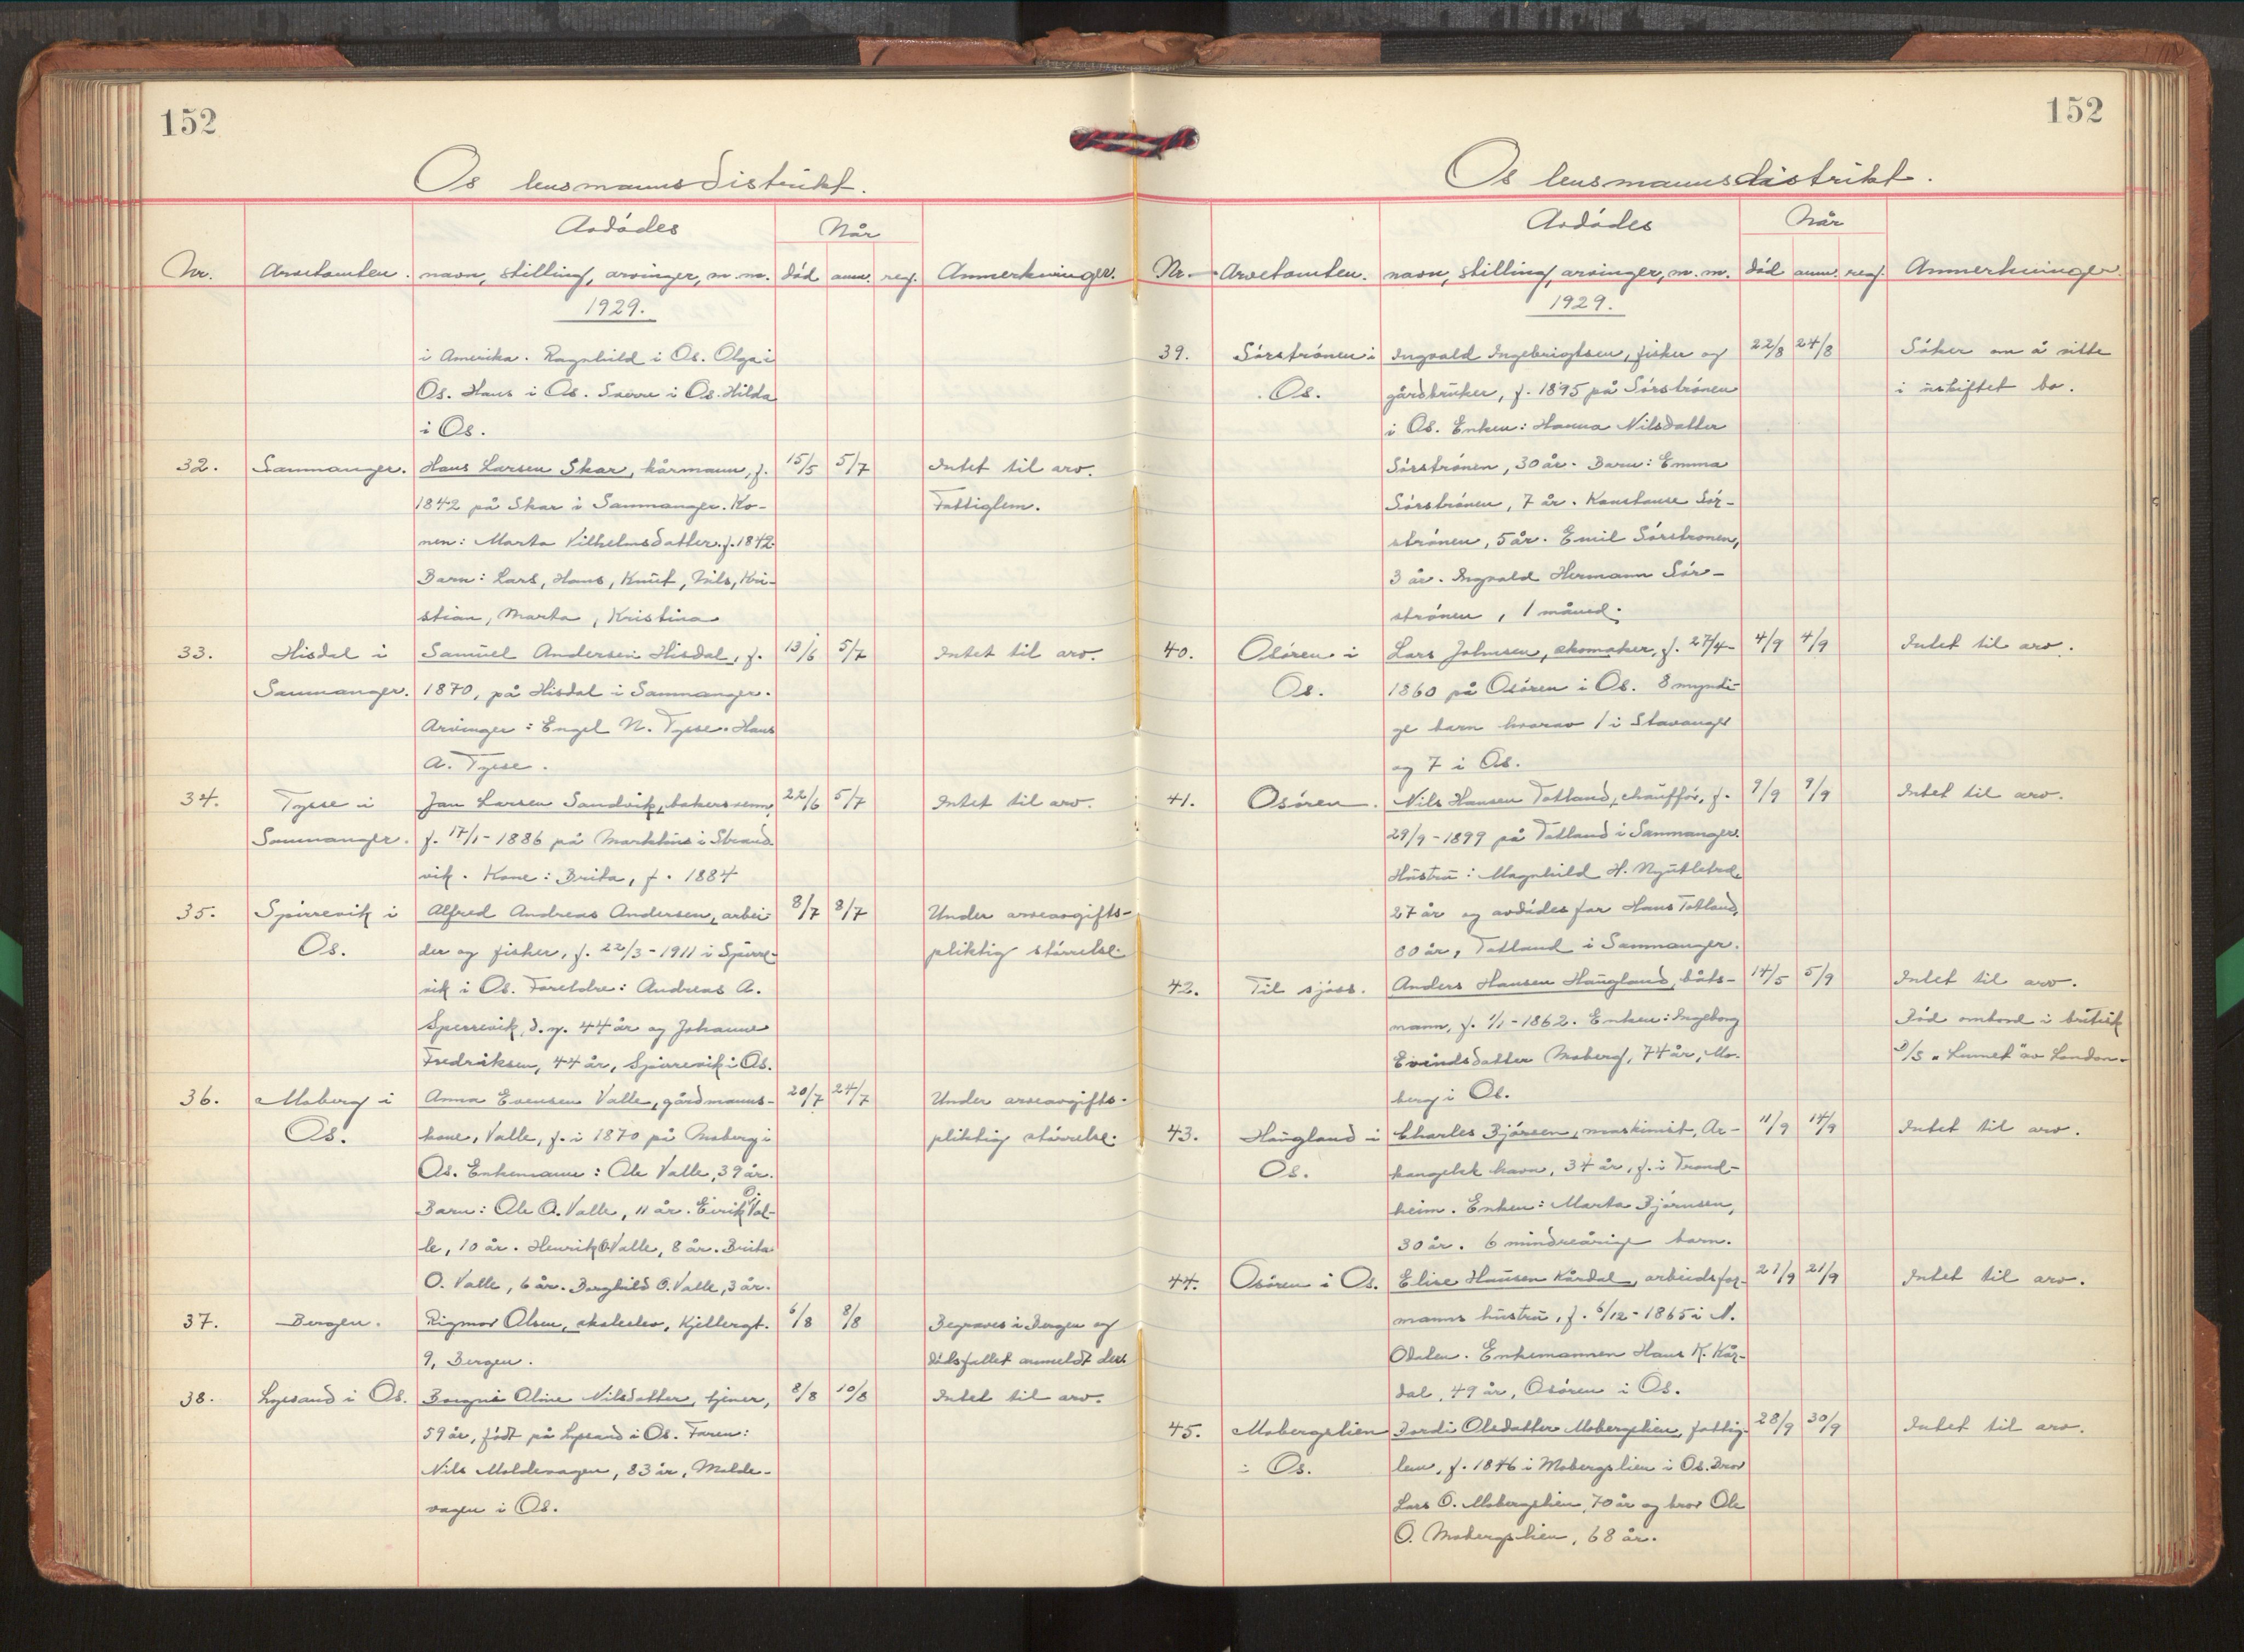 152
Os lensmannsdistrikt.
Avdødes
Når
Nr. Arvetomten. navn, stilling, arvinger, m.m. død anm. reg. Anmerkninger.
1929.
i Amerika. Ragnhild i Os. Olga i
Os. Hans i Os. Sverre i Os. Hilda
i Os.
32. Samnanger. Hans Larsen Skar, kårmann, f. 15/5 5/7 Intet til arv.
1842 på Skar i Samnanger. Ko- Fattiglem.
nen: Marta Vilhelmsdatter, f. 1842.
Barn: Lars, Hans, Knut, Nils, Kri-
stian, Marta, Kristina
33. Hisdal i Samuel Andersen Hisdal, f. 13/6 5/7 Intet til arv.
Samnanger. 1870, på Hisdal i Samnanger.
Arvinger: Engel N. Tysse. Hans
A. Tysse.
34. Tysse i Jan Larsen Sandvik, bakersvenn, 22/6 5/7 Intet til arv.
Samnanger. f. 17/1-1886 på Markhus i Strand-
vik. Kone: Brita, f. 1884
35. Spørrevik i Alfred Andreas Andersen, arbei- 8/7 8/7 Under arveavgifts-
Os. der og fisker, f. 22/3-1911 i Spørre- pliktig størrelse.
vik i Os. Foreldre: Andreas A.
Sperrevik, d.y. 44 år og Johanne
Fredriksen, 44 år, Spørrevik i Os.
36. Moberg i Anna Evensen Valle, gårdmanns- 20/7 24/7 Under arveavgifts-
Os. kone, Valle, f. i 1870 på Moberg i pliktig størrelse.
Os. Enkemann: Ole Valle, 39 år.
Barn: Ole O. Valle, 11 år. Eirik O. Val-
le, 10 år. Henrik O. Valle, 8 år. Brita
O. Valle, 6 år. Borghild O. Valle, 3 år.
37. Bergen. Rigmor Olsen, skoleelev, Kjellergt. 6/8 8/8 Begraves i Bergen og
9, Bergen. dødsfallet anmeldt der.
38. Lysand i Os. Aline Nilsdatter, tjener, 8/8 10/8 Intet til arv.
59 år, født på Lysand i Os. Faren:
Nils Moldevagen, 83 år, Molde-
vagen i Os.
152
Os lensmannsdistrikt.
Avdødes
Når
Nr. Arvetomten. navn, stilling, arvinger, m.m. død anm. reg. Anmerkninger.
1929.
39. Sørstrønen i Ingvald Ingebrigtsen, fisker og 22/8 24/8 Søker om å sitte
Os. gårdbruker, f. 1895 på Sørstrønen i uskiftet bo.
i Os. Enken: Hanna Nilsdatter
Sørstrønen, 30 år. Barn: Emma
Sørstrønen, 7 år. Konstanse Sør-
strønen, 5 år. Emil Sørstrønen,
3 år. Ingvald Hermann Sør-
strønen, 1 måned.
40. Osøren i Lars Johnsen, skomaker, f. 27/4- 4/9 4/9 Intet til arv.
Os. 1860 på Osøren i Os. 8 myndi-
ge barn hvorav 1 i Stavanger
og 7 i Os.
41. Osøren. Nils Hansen Totland, chauffør, f. 9/9 9/9 Intet til arv.
29/9-1899 på Totland i Samnanger.
Hustru: Magnhild H.
27 år og avdødes far Hans Totland,
80 år, Totland i Samnanger.
42. Til sjøss. Anders Hansen Haugland, båts- 14/5 5/9 Intet til arv.
mann, f. 1/1-1862. Enken: Ingeborg Død ombord i britisk
Evindsdatter Moberg, 74 år, Mo- D/S "" av London.
berg i Os.
43. Haugland i Charles Bjørsen, maskinist, Ar- 11/9 14/9 Intet til arv.
Os. kangelsk havn, 34 år, f. i Trond-
heim. Enken: Marta Bjørnsen,
30 år. 6 mindreårige barn.
44. Osøren i Os. Elise Hansen Kårdal, arbeidsfor- 21/9 21/9 Intet til arv.
manns hustru, f. 6/12-1865 i N.
Odalen. Enkemannen Hans K. Kår-
dal, 49 år, Osøren i Os.
45. Mobergslien Dordi Olsdatter Mobergslien, fattig- 28/9 30/9 Intet til arv.
i Os. lem, f. 1846 i Mobergslien i Os. Bror
Lars O. Mobergslien, 70 år og bror Ole
O. Mobergslien, 68 år.